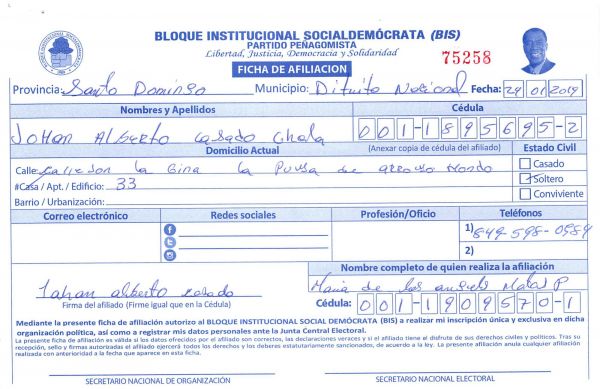 BLOQUE INSTITUCIONAL SOCIALDEMÓCRATA (BIS)
PARTIDO PEÑAGOMISTA
Libertad, Justicia, Democracia y Solidaridad
75258
FICHA DE AFILIACION
Provincia: Santo Domingo Municipio: Ditrito Nacional Fecha: 29 01 2019
Nombres y Apellidos Cédula
JoHan Alberto Casado Chala 001-1895695-2
Domicilio Actual (Anexar copia de cédula del afiliado) Estado Civil
Calle: Callejon la Gina la Puya de arroyo Hondo Casado
#Casa / Apt. / Edificio: 33 Soltero
Barrio / Urbanización: Conviviente
Correo electrónico Redes sociales Profesión/Oficio Teléfonos
1) 849-598-0989
2)
Nombre completo de quien realiza la afiliación
Johan alberto casado Maria de los angeles Matos P
Firma del afiliado (Firme igual que en la Cédula) Cédula: 001-1909570-1
Mediante la presente ficha de afiliación autorizo al BLOQUE INSTITUCIONAL SOCIAL DEMÓCRATA (BIS) a realizar mi inscripción única y exclusiva en dicha
organización política, así como a registrar mis datos personales ante la Junta Central Electoral.
La presente ficha de afiliación es válida si los datos ofrecidos por el afiliado son correctos, las declaraciones veraces y si el afiliado tiene el disfrute de sus derechos civiles y políticos. Tras su
recepción, sello y firmas autorizadas el afiliado ejercerá todos los derechos y los deberes estatutariamente sancionados, de acuerdo a la ley. La presente afiliación anula cualquier afiliación
realizada con anterioridad a la fecha que aparece en esta ficha.
SECRETARIO NACIONAL DE ORGANIZACIÓN SECRETARIO NACIONAL ELECTORAL